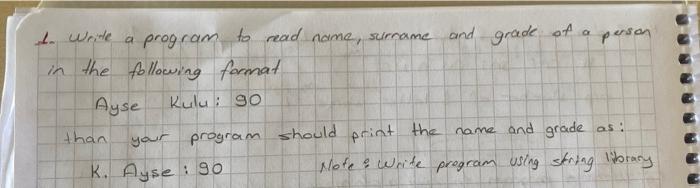 1. Write a program to read name, surname and grade of a person
in the following format
Ayse Kulu : 90
than your program should print the name and grade as :
K. Ayse : 90 Note : Write program using string library